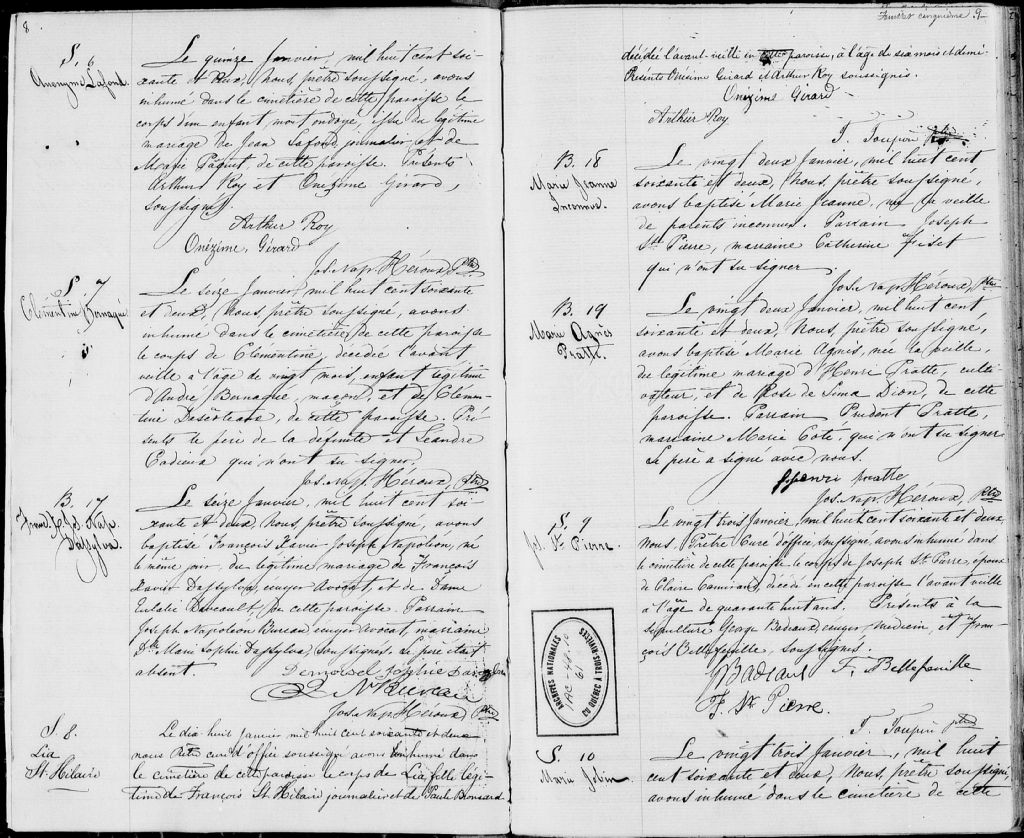 8
S. 6
Anonyme Lafond.
Le quinze Janvier, mil huit cent soi-
xante et deux, Nous, prêtre soussigné, avons
inhumé dans le cimetière de cette paroisse le
corps d'un enfant mort ondoyé, issu du légitime
mariage de Jean Lafond, journalier, et de
Marie Paquet de cette paroisse. Présents
Arthur Roy et Onézime Girard,
soussignés
Arthur Roy
Onézime Girard
Jos. Nap. Héroux, Ptre
S. 7
Clémentine Bernaque
Le seize Janvier, mil huit cent soixante
et deux, Nous, prêtre soussigné, avons
inhumé dans le cimetière de cette paroisse
le corps de Clémentine, décédée l'avant
veille à l'âge de vingt mois, enfant légitime
d'André Bernaque, maçon, et de Clémen-
tine de cette paroisse. Pré-
sents le père de la défunte et Léandre
Cadieux qui n'ont su signer.
Jos. Nap. Héroux, Ptre
B. 17
Jos. Nap.
Dassylva.
Le seize Janvier, mil huit cent soi-
xante et deux, Nous, prêtre soussigné, avons
baptisé François Xavier Joseph Napoléon, né
le même jour, du légitime mariage de François
Xavier Dassylva, écuyer Avocat, et de Dame
Eulalie de cette paroisse. Parrain
Joseph Napoléon Bureau écuyer Avocat, marraine
Dlle Marie Sophie Dassylva, soussignés. Le père était
absent.
Demoisel Sophie
J N Bureau
Jos. Nap. Héroux, Ptre
S. 8.
Lia
St. Hilaire
Le dix huit Janvier mil huit cent soixante et deux
nous Ptre curé d'office soussigné avons inhumé dans
le cimetière de cette paroisse le corps de Lia, fille légi-
time de François St. Hilaire journalier et de Paule Bronsard
Feuillet cinquième 9
décédée l'avant-veille en cette paroisse, à l'âge de six mois et demi.
Présents Onésime Girard et Arthur Roy soussignés.
Onézime Girard
Arthur Roy
T. Toupin ptre
B. 18
Marie Jeanne
Inconnus.
Le vingt deux Janvier, mil huit cent
soixante et deux, Nous, prêtre soussigné,
avons baptisé Marie Jeanne, née la veille
de parents inconnus. Parrain Joseph
St. Pierre, marraine Catherine Fiset
qui n'ont su signer.
Jos. Nap. Héroux, Ptre
B. 19
Marie Agnès
Pratte.
Le vingt deux Janvier, mil huit cent
soixante et deux, Nous, prêtre soussigné,
avons baptisé Marie Agnès, née la veille,
du légitime mariage d'Henri Pratte, culti-
vateur, et de Rose de Lima Dion, de cette
paroisse. Parrain Prudent Pratte,
marraine Marie Coté, qui n'ont su signer
Le père a signé avec nous.
henri pratte
Jos. Nap. Héroux, Ptre
S. 9
Jos. St. Pierre.
Le vingt trois Janvier, mil huit cent soixante et deux,
Nous, Prêtre Curé d'office, soussigné, avons inhumé dans
le cimetière de cette paroisse le corps de Joseph St. Pierre, époux
de Claire Camirand, décédé en cette paroisse l'avant veille
à l'âge de quarante huit ans. Présents à la
sépulture George Badeaux, écuyer, médecin, et Fran-
çois Bellefeuille, soussignés.
Badeaux F. Bellefeuille
F. St. Pierre.
T. Toupin ptre
ARCHIVES NATIONALES
DU QUÉBEC À TROIS-RIVIÈRES
61
S. 10
Marie Jobin
Le vingt trois Janvier, mil huit
cent soixante et deux, Nous, prêtre soussigné,
avons inhumé dans le cimetière de cette